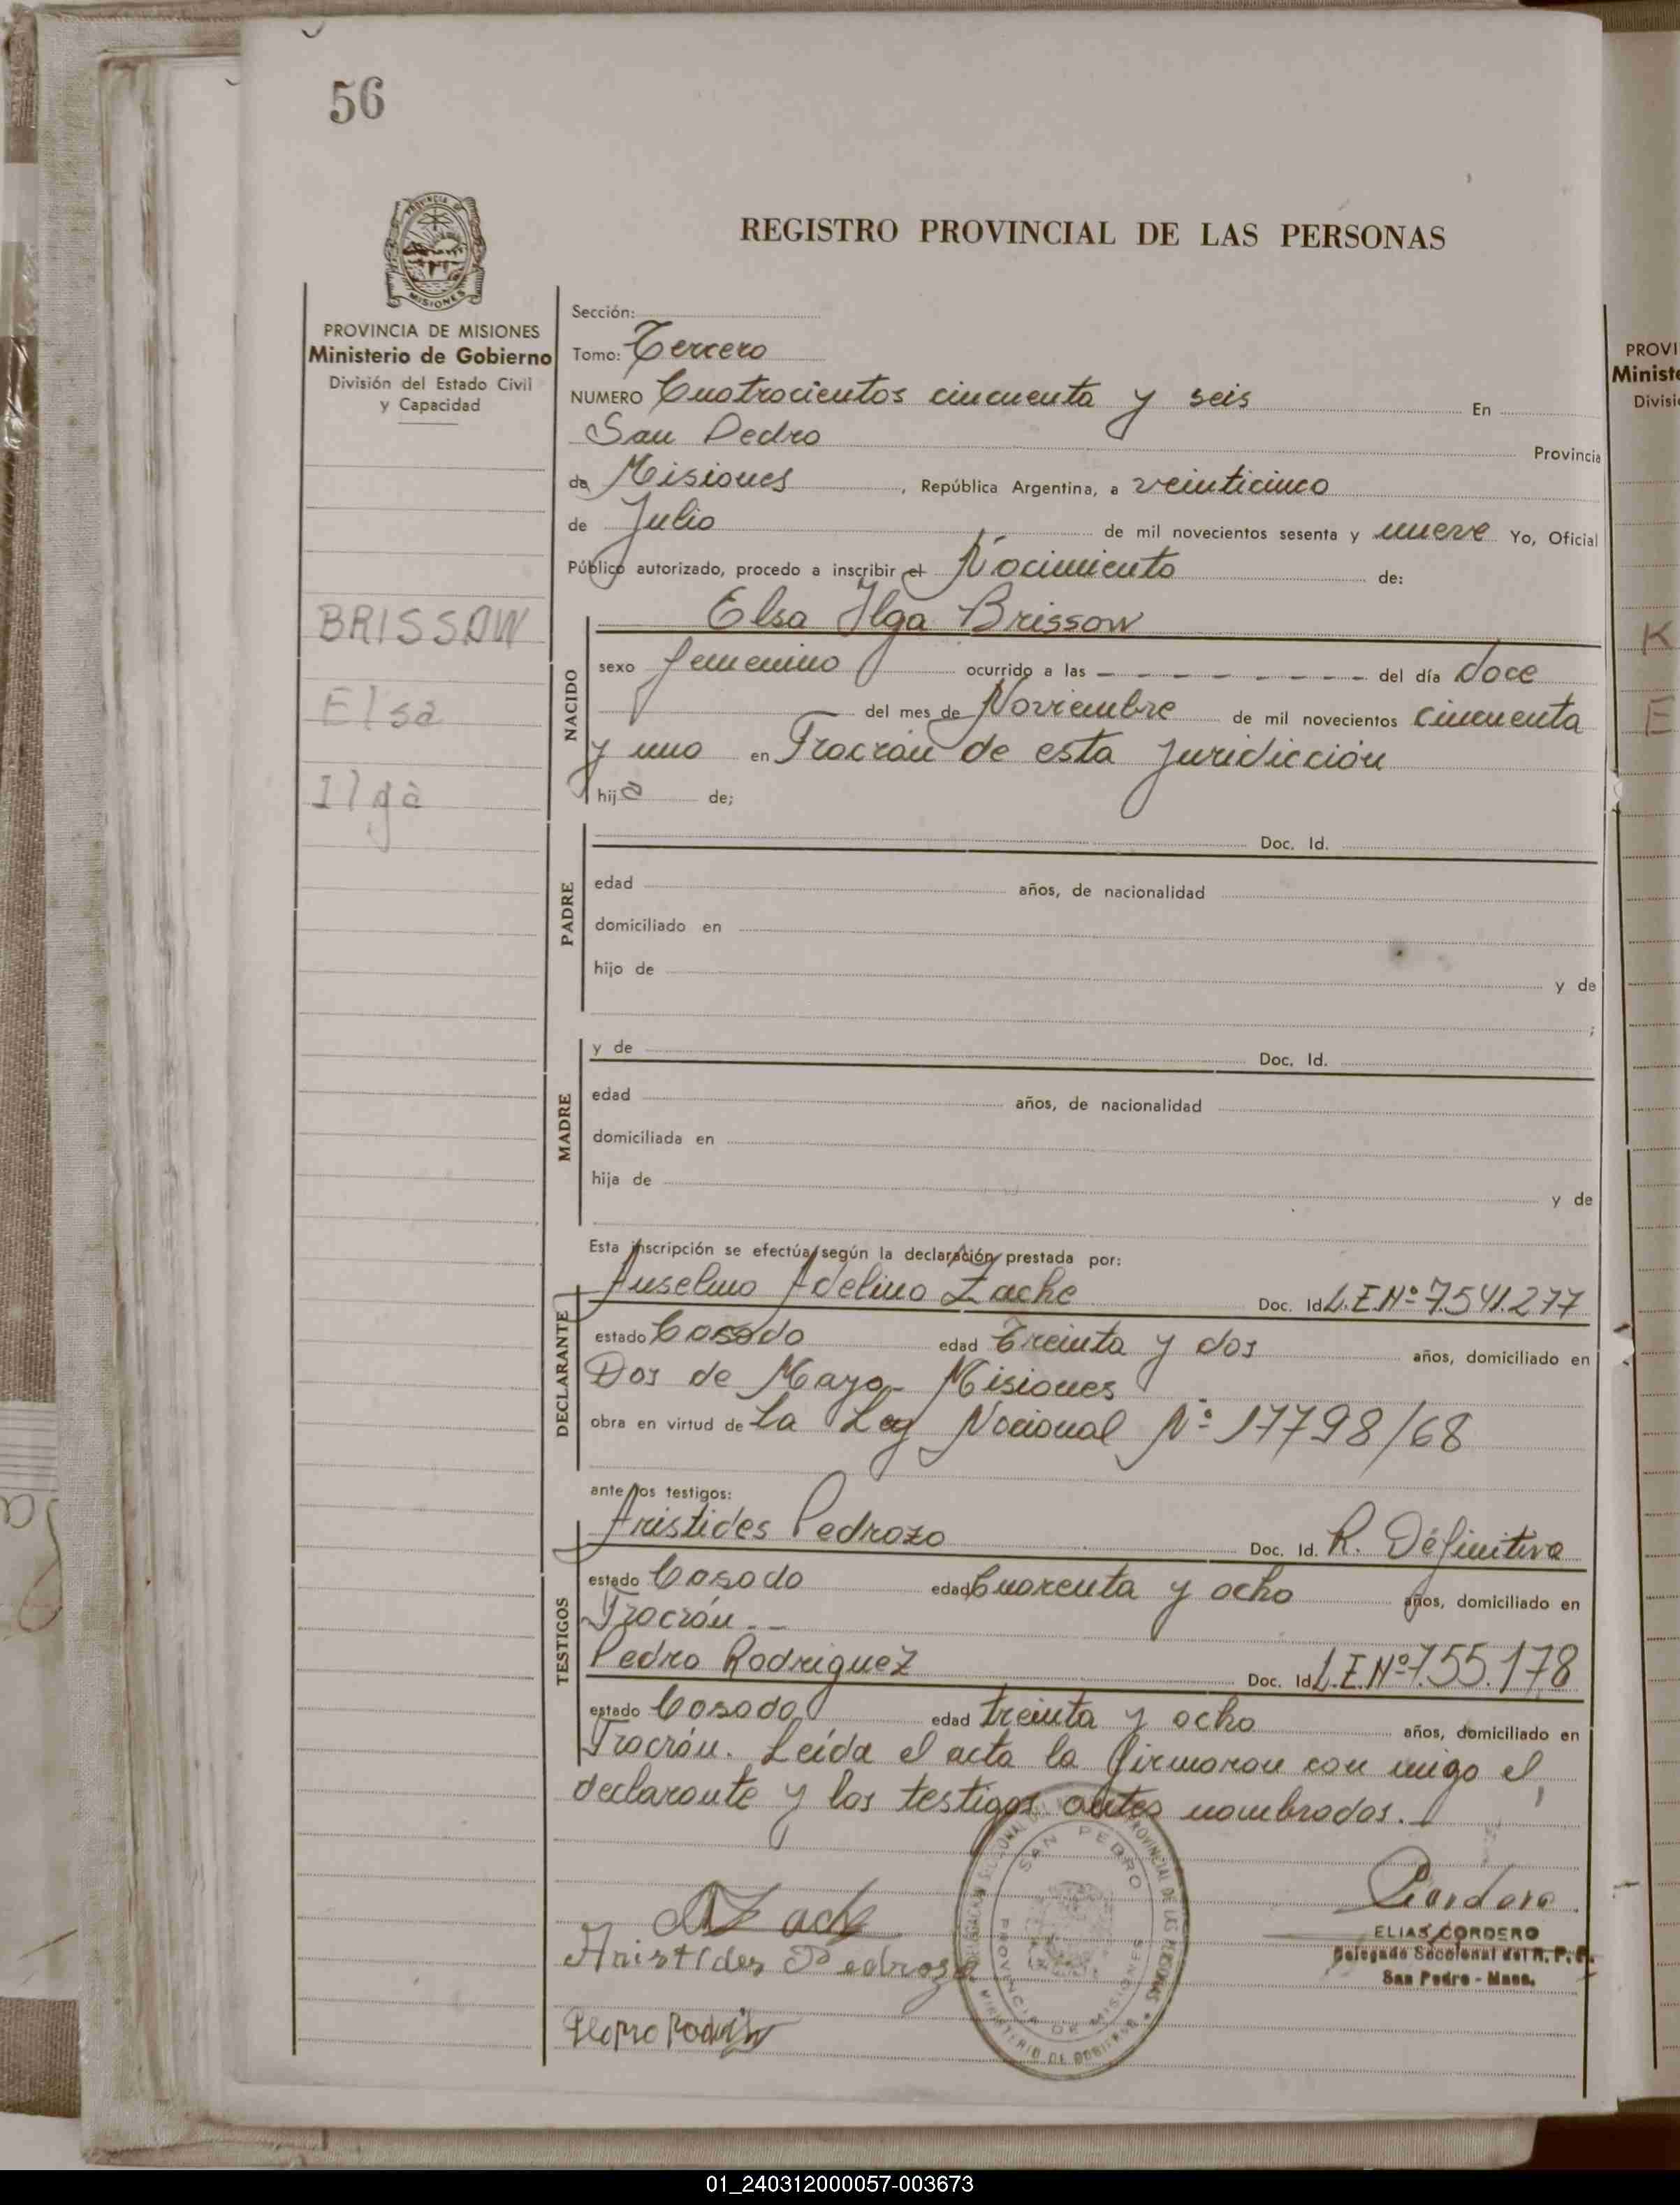 56
REGISTRO PROVINCIAL DE LAS PERSONAS
PROVINCIA DE MISIONES
Ministerio de Gobierno
División del Estado Civil
y Capacidad
BRISSOW
Elsa
Ilga
Sección:
Tomo: Tercero
NUMERO Cuatrocientos cincuenta y seis En
San Pedro Provincia
de Misiones, República Argentina, a veinticinco
de Julio de mil novecientos sesenta y nueve Yo, Oficial
Público autorizado, procedo a inscribir el Nacimiento de:
Elsa Ilga Brissow
NACIDO
sexo femenino ocurrido a las - - - - - - - - - - del día doce
del mes de Noviembre de mil novecientos cincuenta
y uno en Fracrán de esta Juridicción
hija de;
PADRE
Doc. Id.
edad años, de nacionalidad
domiciliado en
hijo de y de
;
MADRE
y de Doc. Id.
edad años, de nacionalidad
domiciliada en
hija de y de
Esta inscripción se efectúa según la declaración prestada por:
DECLARANTE
Anselmo Adelino Zache Doc. Id L.E.Nº 7.541.277
estado Casado edad Treinta y dos años, domiciliado en
Dos de Mayo - Misiones
obra en virtud de La Ley Nacional Nº 17798/68
ante los testigos:
TESTIGOS
Aristides Pedrozo Doc. Id. R. Definitiva
estado Casado edad Cuarenta y ocho años, domiciliado en
Fracrán. - -
Pedro Rodriguez Doc. Id L.E.Nº 7.55.178
estado Casado edad treinta y ocho años, domiciliado en
Fracrán. Leída el acta la firmaron con migo el,
declarante y los testigos antes nombrados.
AZache
Aristides Pedrozo
Pedro
Cordero
ELIAS CORDERO
Delegado Seccional del R. P. P.
San Pedro - Mnes.
SAN PEDRO
PROVINCIA DE MISIONES
PROVINCIAL DE LAS PERSONAS
MINISTERIO DE GOBIERNO
PROVI
Ministe
Divisi
K
E
01_240312000057-003673